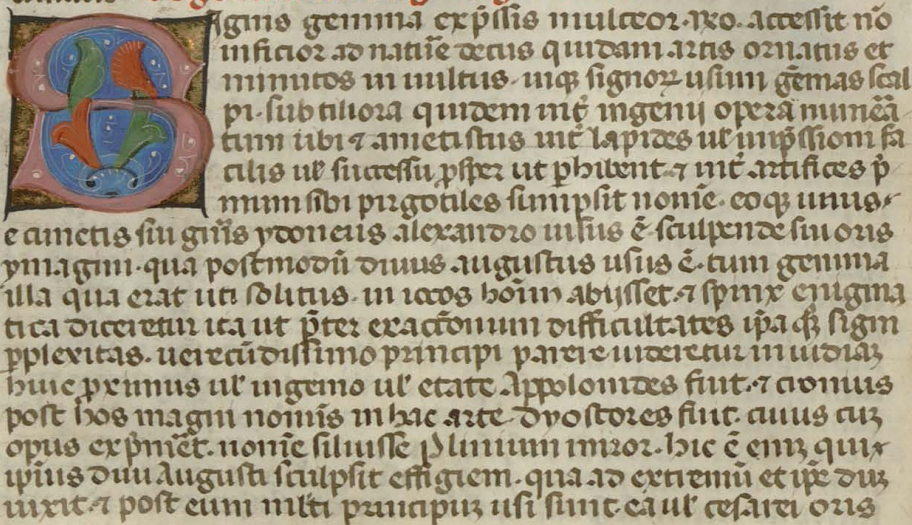 Signis gemma exp̄ssis mulceor. Rō. accessit nō
inficior ad natiuē decus quidam artis ornatus et
minutos in uultus. inq̨ signoꝝ usum gēmas scal
pi. subtiliora quidem int̄ ingenii opera numēā
tum ubi ⁊ ametistus int̄ lapides ul̄ imp̄ssioni fa
cilis ul̄ successu ꝓsper ut ꝑhibent. ⁊ int̄ artifices p̄
mum sibi pirgotiles sumpsit nomē. eoq̨ unus
e cunctis sui gn̄is ydoneus alexandro uisus ē. sculpende sui oris
ymagini. qua postmodū diuus augustus usus ē. cum gemma
illa qua erat uti solitus. in iocos hoīm abijsset. ⁊ spinx enigma
tica diceretur ita ut p̄ter exactionum difficultates ip̄aq̨ signi
ꝑplexitas. uerecūdissimo principi parere uideretur inuidiaꝫ
huic ꝓximus ul̄ ingenio ul̄ etate Appolonides fuit. ⁊ cronius
post hos magni nomīs in hac arte. dyoscores fuit. cuius cuꝫ
opus exp̄miēt. nomē siluisse Plinium miror. hic ē eniꝫ qui
ipīus diui Augusti sculpsit effigiem. qua ad extremū et ip̄e duꝫ
uixit. ⁊ post eum ml̄ti principum usi sunt. ea ul̄ cesarei oris